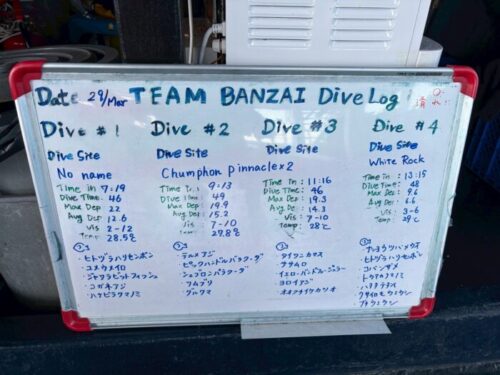 Date 29/Mar TEAM BANZAI Dive Log 晴れ
Dive #1
Dive Site
No name
Time in : 7:19
Dive Time : 46
Max Dep : 22
Avg Dep : 12.6
Vis : 2-12
Temp : 28.5℃
・ヒトヅラハリセンボン
・コメウメイロ
・ジャワラビットフィッシュ
・コガネアジ
・ハナビラクマノミ
Dive #2
Dive Site
Chumphon pinnacle x2
Time in : 9:13
Dive Time : 49
Max Dep : 19.9
Avg Dep : 15.2
Vis : 7-10
Temp : 28.8℃
・テルメアジ
・ピックハンドルバラクーダ
・シェブロンバラクーダ
・ツムブリ
・グルクマ
Dive #3
Dive Site
Time in : 11:16
Dive Time : 46
Max Dep : 19.3
Avg Dep : 14.3
Vis : 7-10
Temp : 28℃
・タイワンカマス
・ササムロ
・イエローバンドルフュージラー
・ヨロイアジ
Dive #4
Dive Site
White Rock
Time in : 13:15
Dive Time : 48
Max Dep : 9.6
Avg Dep : 6.6
Vis : 3-6
Temp : 29℃
・ヒトヅラハリセンボン
・コバンザメ
・トウアカクマノミ